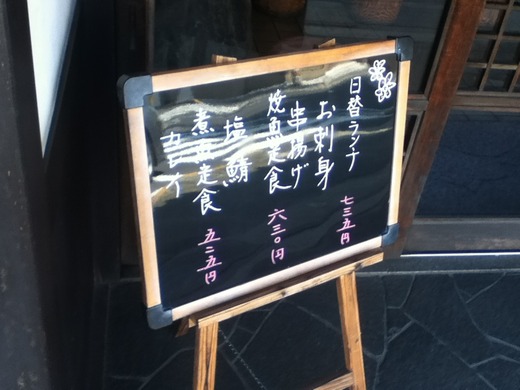 日替ランチ
お刺身
串揚げ 七三五円
焼魚定食
塩鯖 六三〇円
煮魚定食
カレイ 五二五円